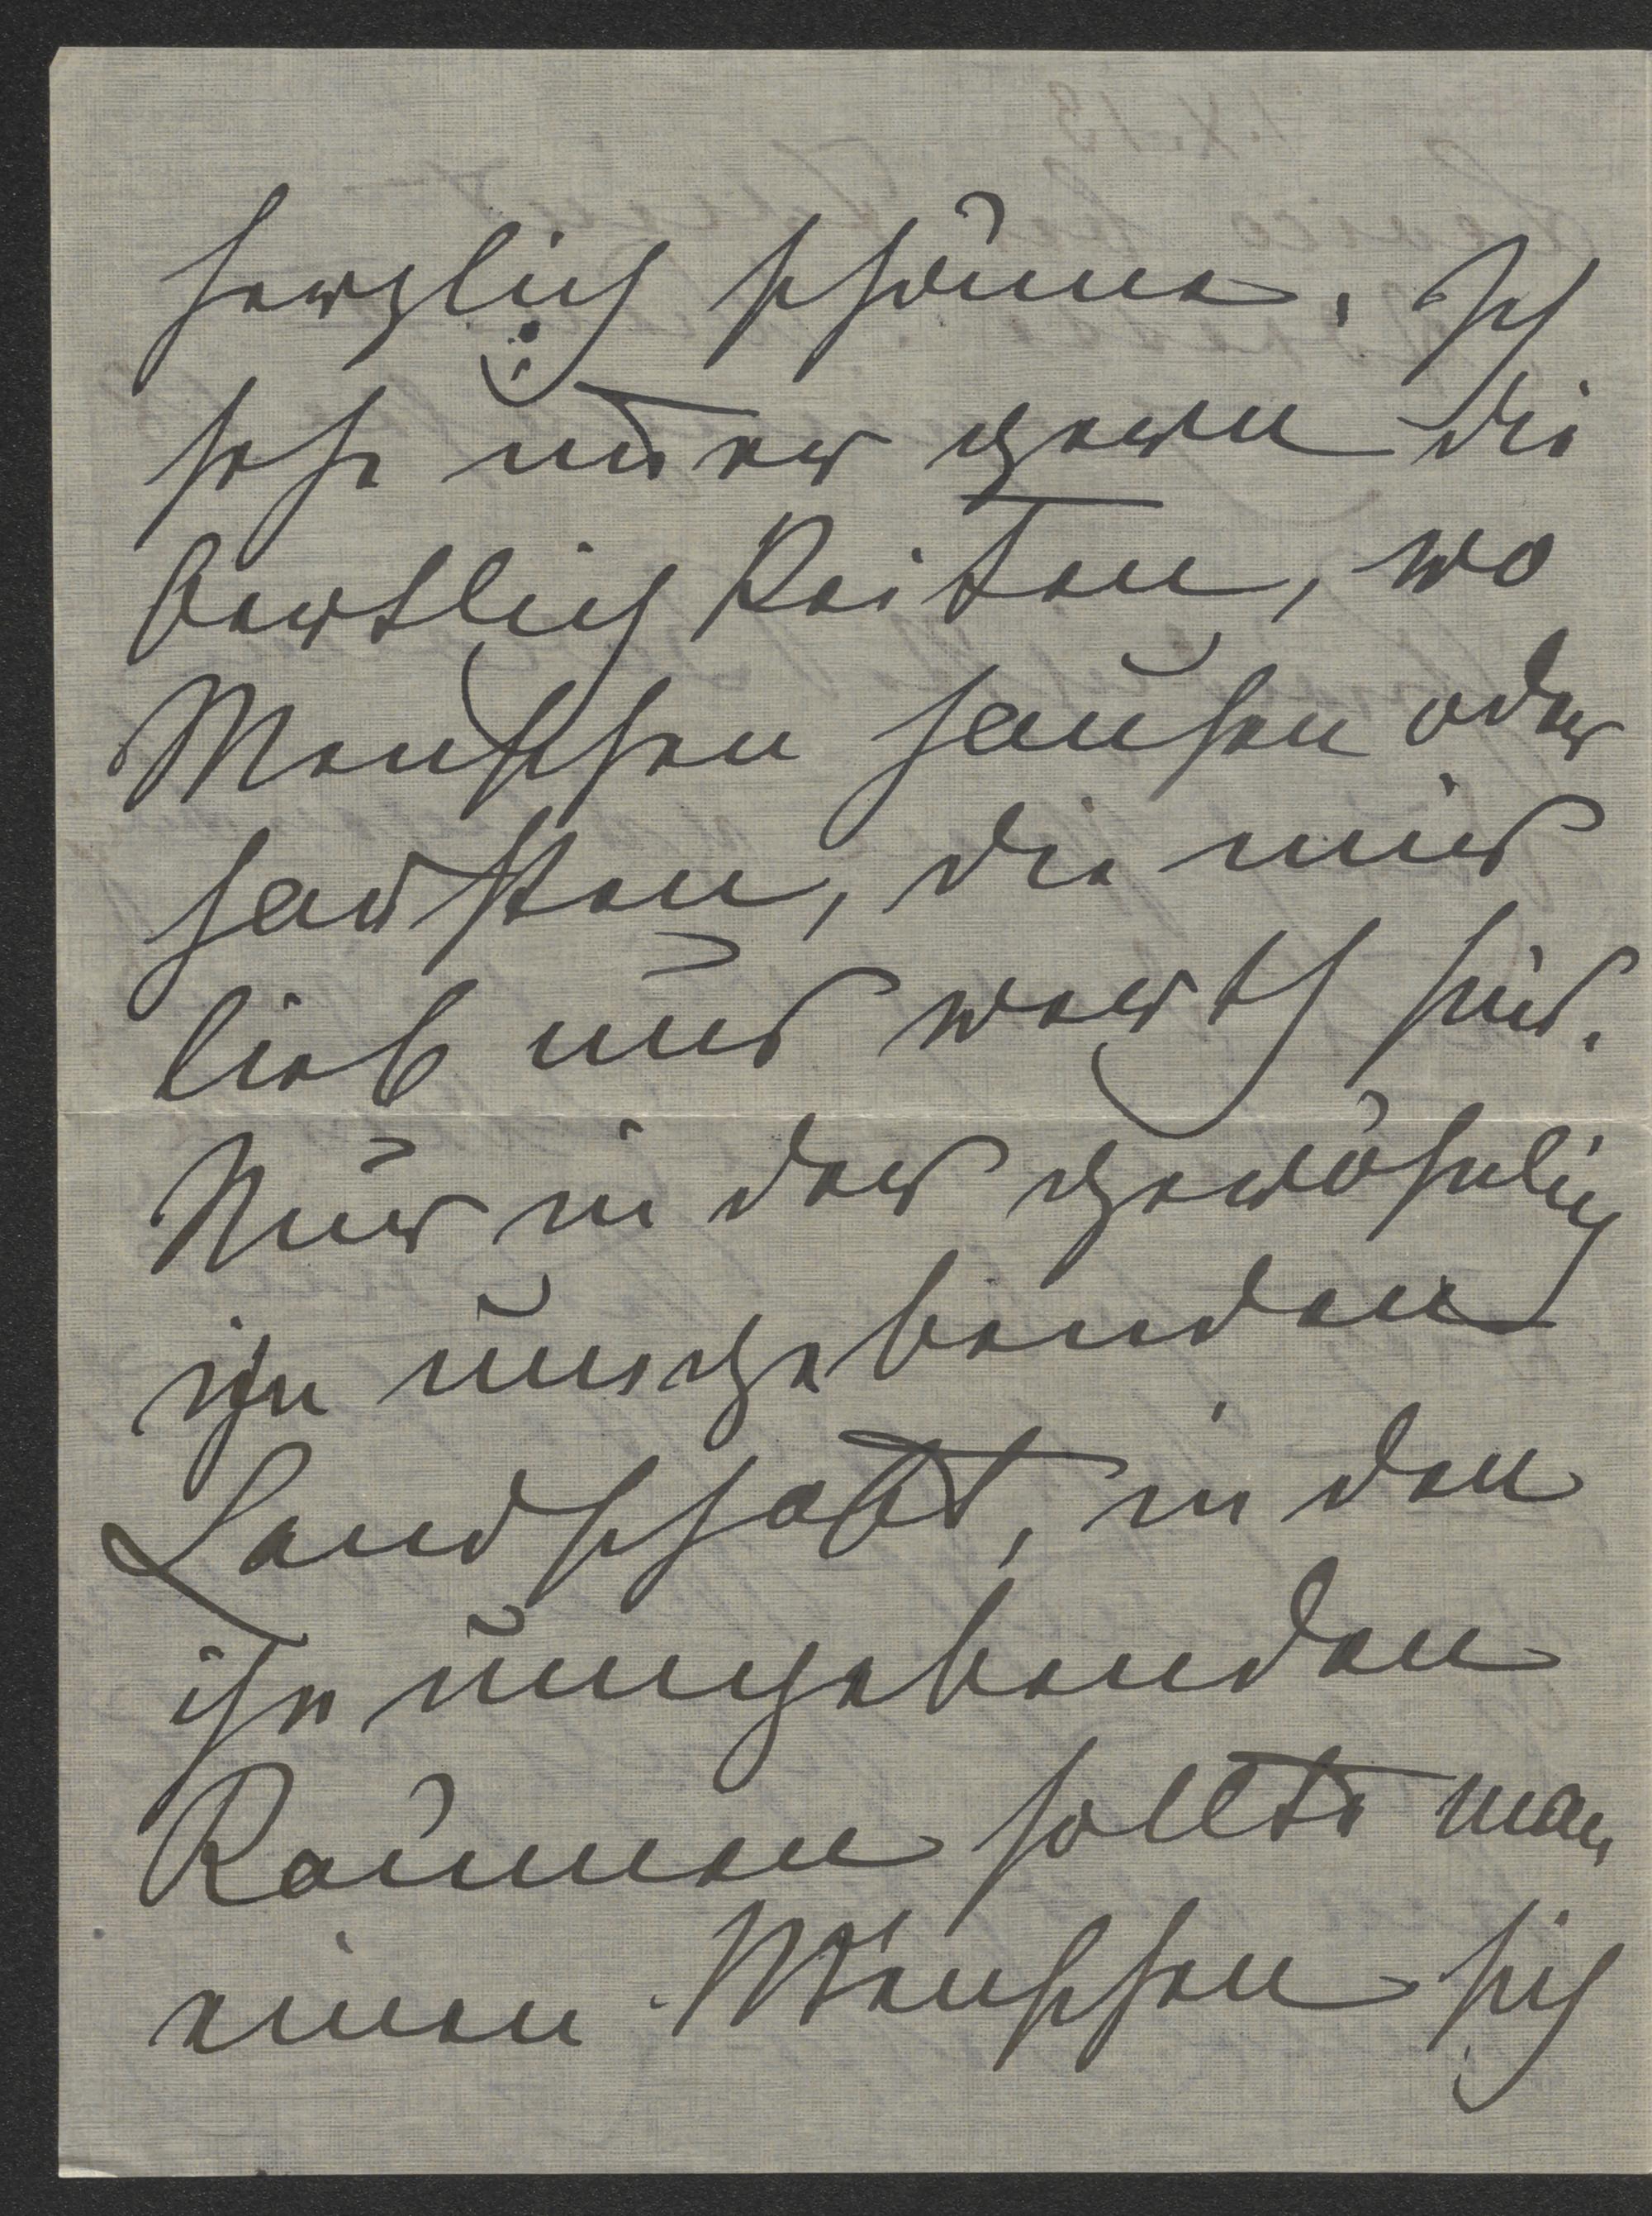 herzlich schöne. Ich
sehe immer gern die
Oertlichkeiten, wo
Menschen hausen oder
hausten, die mir
lieb und werth sind.
Nur in der gewöhnlich
ihn umgebenden
Landschaft, in den
ihn umgebenden
Räumen sollte man
einen Menschen sich